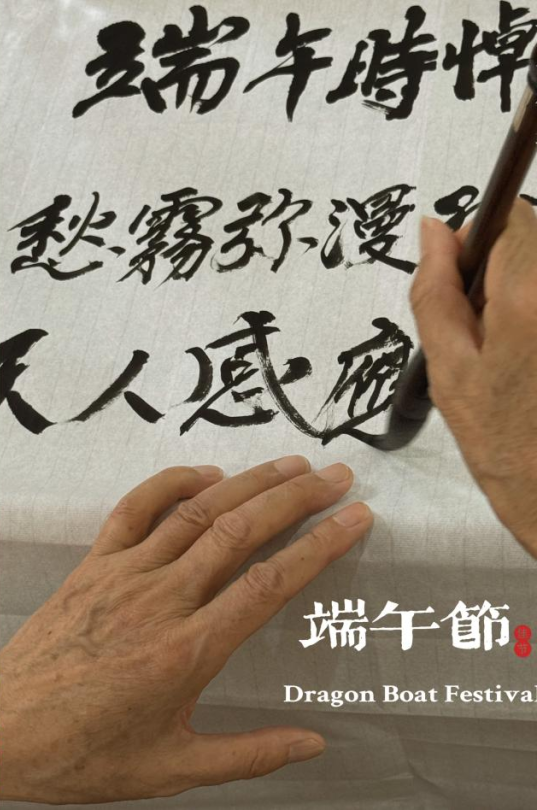 端午時悼
愁霧弥漫
天人感應
端午節
Dragon Boat Festival